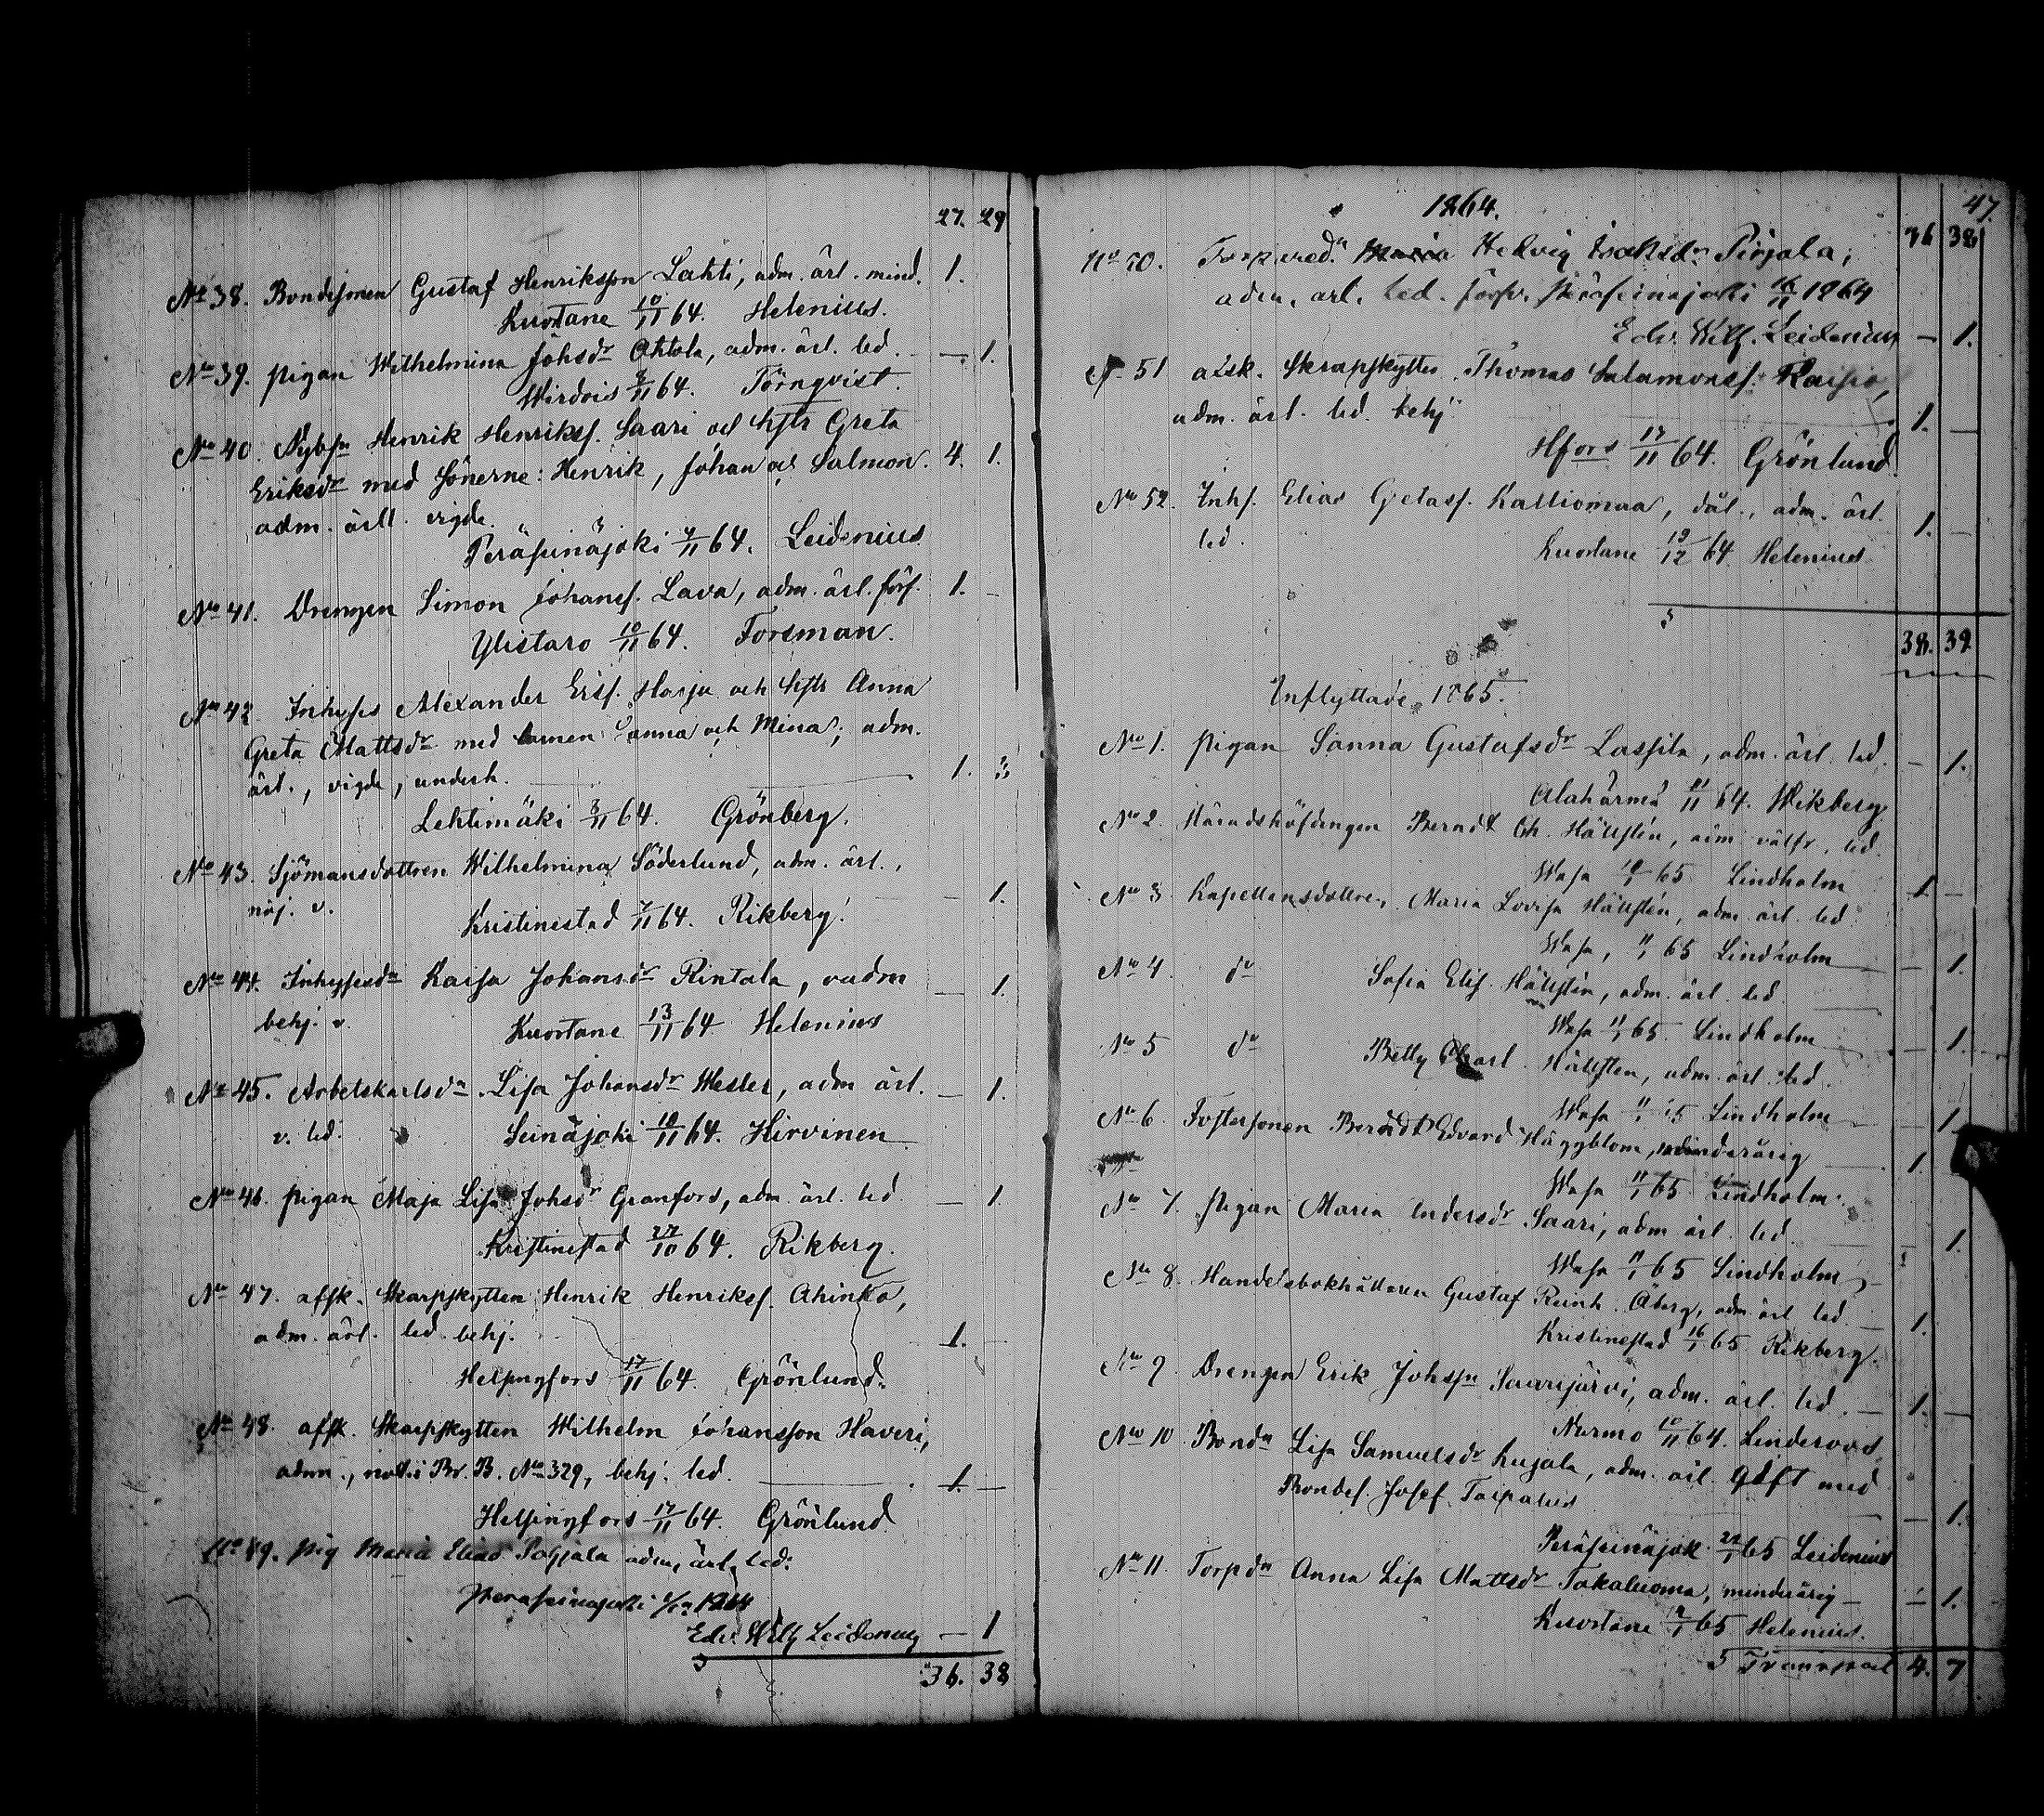 27. 29
No 38. Bondesonen Gustaf Henriksson Lahti, adm. ärl. mind. 1.
Kuortane 10/11 64. Helenius.
No 39. pigan Wilhelmina Johsdr Ahtola, adm. ärl. led. — 1.
Wirdois 9/11 64. Törnqvist.
No 40. Nybyn Henrik Henrikss. Saari och hstr Greta
Eriksdr med sönerne: Henrik, Johan och Salmon. 4. 1.
adm. ärl. vigde.
Peräseinäjoki 7/11 64. Leidenius
No 41. Drengen Simon Johanss. Lava, adm. ärl. förs. 1. -
Ylistaro 10/11 64. Forsman.
No 42. Inhyses Alexander Erss. Harju och hstr Anna
Greta Mattsdr med barnen Sanna och Mina; adm.
ärl., vigde, underh. 1. 3
Lehtimäki 3/11 64. Grönberg.
No 43. Sjömansdottren Wilhelmina Söderlund, adm. ärl.,
nöj. v. — 1.
Kristinestad 7/11 64. Rikberg.
No 44. Inhysesdn Kaisa Johansdr Rintala, oadm
behj. v. — 1.
Kuortane 13/11 64 Helenius
No 45. Arbetskarlsdn Lisa Johansdr Wesler, adm ärl. — 1.
v. led.
Seinäjoki 10/11 64. Hirvinen
No 46. pigan Maja Lisa Johsdr Granfors, adm. ärl. led — 1.
Kristinestad 27/10 64. Rikberg.
No 47. afsk. Skarpskytten Henrik Henrikss. Ahinko,
adm. ärl. led. behj. 1. -
Helsingfors 17/11 64. Grönlund.
No 48. afsk. Skarpskytten Wilhelm Johansson Haveri,
adm., not. i Br. B. No 329, behj. led. 1. —
Helsingfors 17/11 64. Grönlund
No 49. pig Maria Elias Pohjala adm, ärl, led:
Peräseinäjoki 1864
Edv. Wilh Leidenius — 1
36. 38
1864. 47.
36 38
No 50. Torparedn Hedvig Isaksdr Pirjola;
adm. ärl. led. försv. Peräseinäjoki 16/11 1864
Edv. Wilh. Leidenius — 1.
No 51 afsk. Skrapskytten Thomas Salamonss. Raisio,
adm. ärl. led. behj. 1. —
Hfors 17/11 64. Grönlund.
No 52. Inhs. Elias Gretass. Kalliomaa, däl., adm. ärl.
led. 1. —
Kuortane 19/12 64 Helenius
38. 39
Inflyttade 1865.
No 1. pigan Sanna Gustafsdr Lassila, adm. ärl. led. — 1.
Alahärmä 64. Wikberg
No 2. Häradshöfdingen Berndt Gh. Hällstén, adm välfr. led.
Wasa 65 Lindholm 1 —
No 3 Kapellansdottren Maria Lovisa Hällstén, adm. ärl. led.
Wasa 11/1 65 Lindholm — 1.
No 4. do Sofia Elis. Hällstén, adm. ärl. led.
Wasa 11/1 65. Lindholm — 1.
No 5 do Betty Charl. Hällsten, adm. ärl. led.
Wasa 11/1 65 Lindholm — 1.
No 6. Fostersonen Berndt Edvard Häggblom, minderårig 1.
Wasa 11/1 65 Lindholm.
No 7. Pigan Maria Andersdr Saari, adm ärl. led. — 1.
Wasa 11/1 65 Lindholm
No 8. Handelsbokhållaren Gustaf Reinh. Åberg, adm. ärl led. — 1.
Kristinestad 16/1 65 Rikberg.
No 9. Drengen Erik Johssn Saarijärvi, adm. ärl. led. — 1. —
Nurmo 10/11 64. Linderoos.
No 10. Bondn Lisa Samuelsdr Kujala, adm. ärl. gift med
Bondes. Josef Taipalus — 1.
Peräseinäjoki 65 Leidenius
No 11. Torpdn Anna Lisa Mattsdr Takaluoma, minderårig — — 1.
Kuortane 65 Helenius.
Transport 4. 7